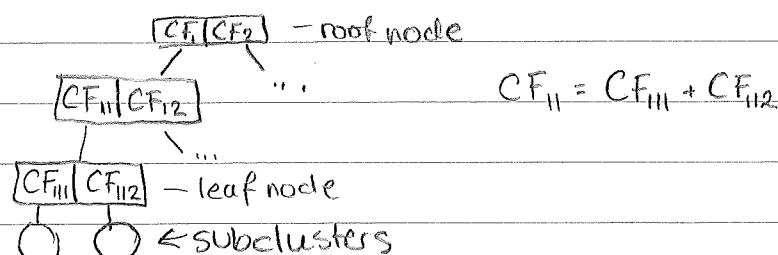 CF₁ CF₂ – root node
CF₁₁ CF₁₂ ...
CF₁₁ = CF₁₁₁ + CF₁₁₂
...
CF₁₁₁ CF₁₁₂ – leaf node
← subclusters